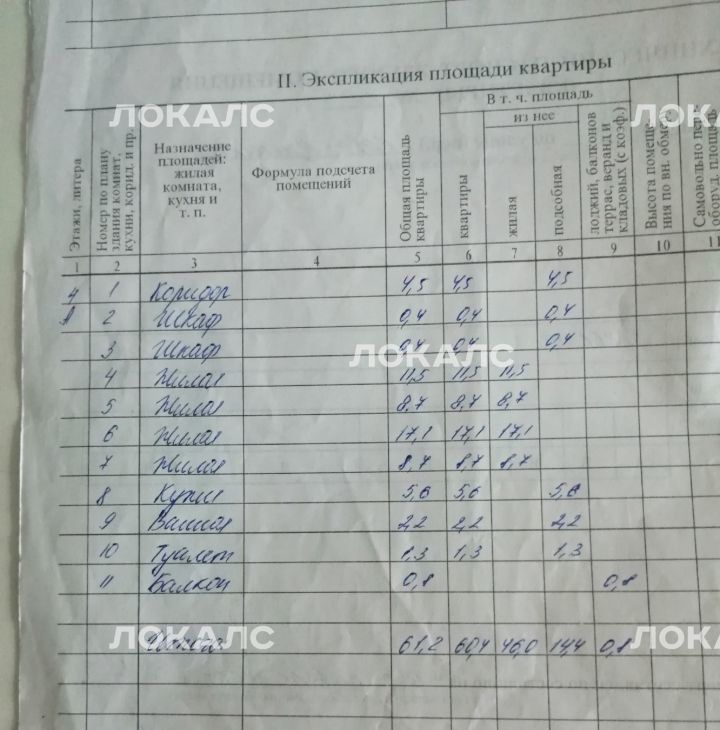 II. Экспликация площади квартиры
Этажи, литера
Номер по плану здания комнат, кухни, корид. и пр.
Назначение площадей: жилая комната, кухня и т. п.
Формула подсчета помещений
Общая площадь квартиры
В т. ч. площадь
из нее
квартиры
жилая
подсобная
лоджий, балконов террас, веранд и кладовых (с коэф.)
Высота помеще- ния по вн. обмеру
Самовольно пере- оборуд. площадь
1 2 3 4 5 6 7 8 9 10 11
4 1 Коридор 4,5 4,5 4,5
А 2 Шкаф 0,4 0,4 0,4
3 Шкаф 0,4 0,4 0,4
4 Жилая 11,5 11,5 11,5
5 Жилая 8,7 8,7 8,7
6 Жилая 17,1 17,1 17,1
7 Жилая 8,7 8,7 8,7
8 Кухня 5,6 5,6 5,6
9 Ванная 2,2 2,2 2,2
10 Туалет 1,3 1,3 1,3
11 Балкон 0,8 0,8
Итого: 61,2 60,4 46,0 14,4 0,8
ЛОКАЛС
ЛОКАЛС
ЛОКАЛС
ЛОКАЛС
ЛОКАЛС